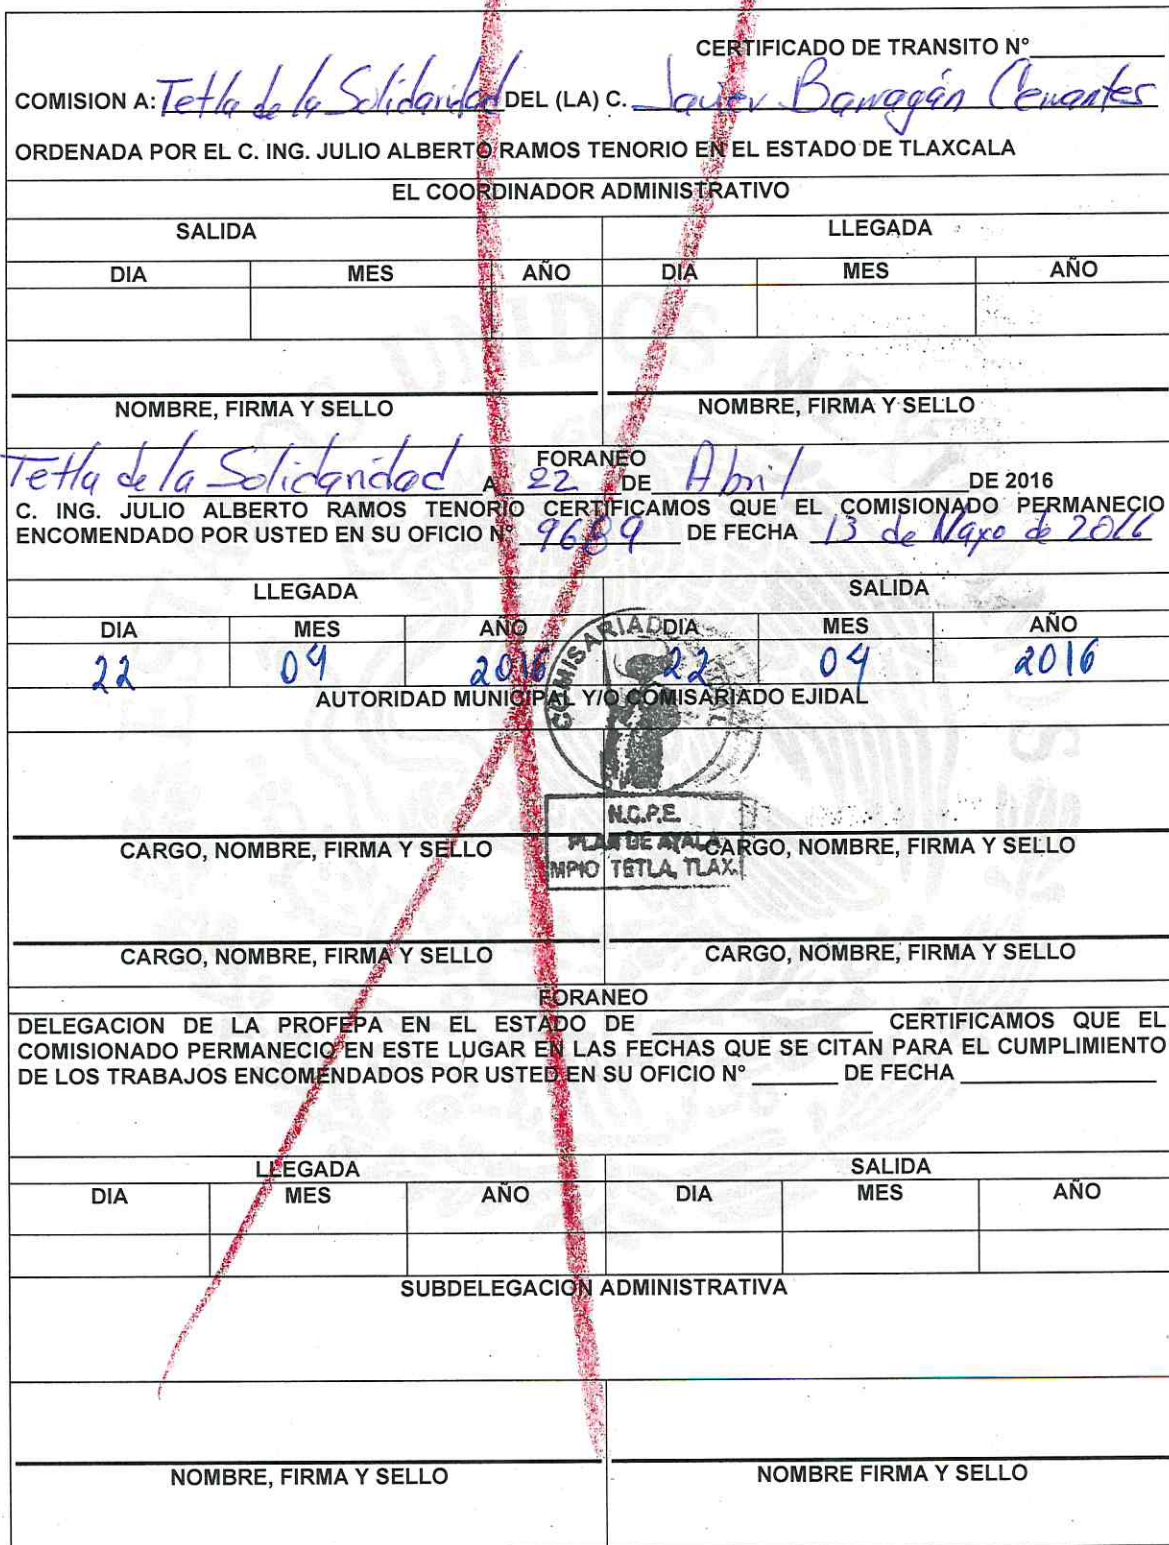 CERTIFICADO DE TRANSITO N°
COMISION A: Tetla de la Solidaridad DEL (LA) C. Javier Barragán Cervantes
ORDENADA POR EL C. ING. JULIO ALBERTO RAMOS TENORIO EN EL ESTADO DE TLAXCALA
EL COORDINADOR ADMINISTRATIVO
SALIDA LLEGADA
DIA MES AÑO DIA MES AÑO
NOMBRE, FIRMA Y SELLO NOMBRE, FIRMA Y SELLO
FORANEO
Tetla de la Solidaridad A 22 DE Abril DE 2016
C. ING. JULIO ALBERTO RAMOS TENORIO CERTIFICAMOS QUE EL COMISIONADO PERMANECIO
ENCOMENDADO POR USTED EN SU OFICIO N° 9689 DE FECHA 13 de Mayo de 2016
LLEGADA SALIDA
DIA MES AÑO DIA MES AÑO
22 04 2016 22 04 2016
AUTORIDAD MUNICIPAL Y/O COMISARIADO EJIDAL
COMISARIADO EJIDAL
N.C.P.E.
PLAN DE AYALA
MPIO TETLA, TLAX.
CARGO, NOMBRE, FIRMA Y SELLO CARGO, NOMBRE, FIRMA Y SELLO
CARGO, NOMBRE, FIRMA Y SELLO CARGO, NOMBRE, FIRMA Y SELLO
FORANEO
DELEGACION DE LA PROFEPA EN EL ESTADO DE CERTIFICAMOS QUE EL
COMISIONADO PERMANECIO EN ESTE LUGAR EN LAS FECHAS QUE SE CITAN PARA EL CUMPLIMIENTO
DE LOS TRABAJOS ENCOMENDADOS POR USTED EN SU OFICIO N° DE FECHA
LLEGADA SALIDA
DIA MES AÑO DIA MES AÑO
SUBDELEGACION ADMINISTRATIVA
NOMBRE, FIRMA Y SELLO NOMBRE FIRMA Y SELLO